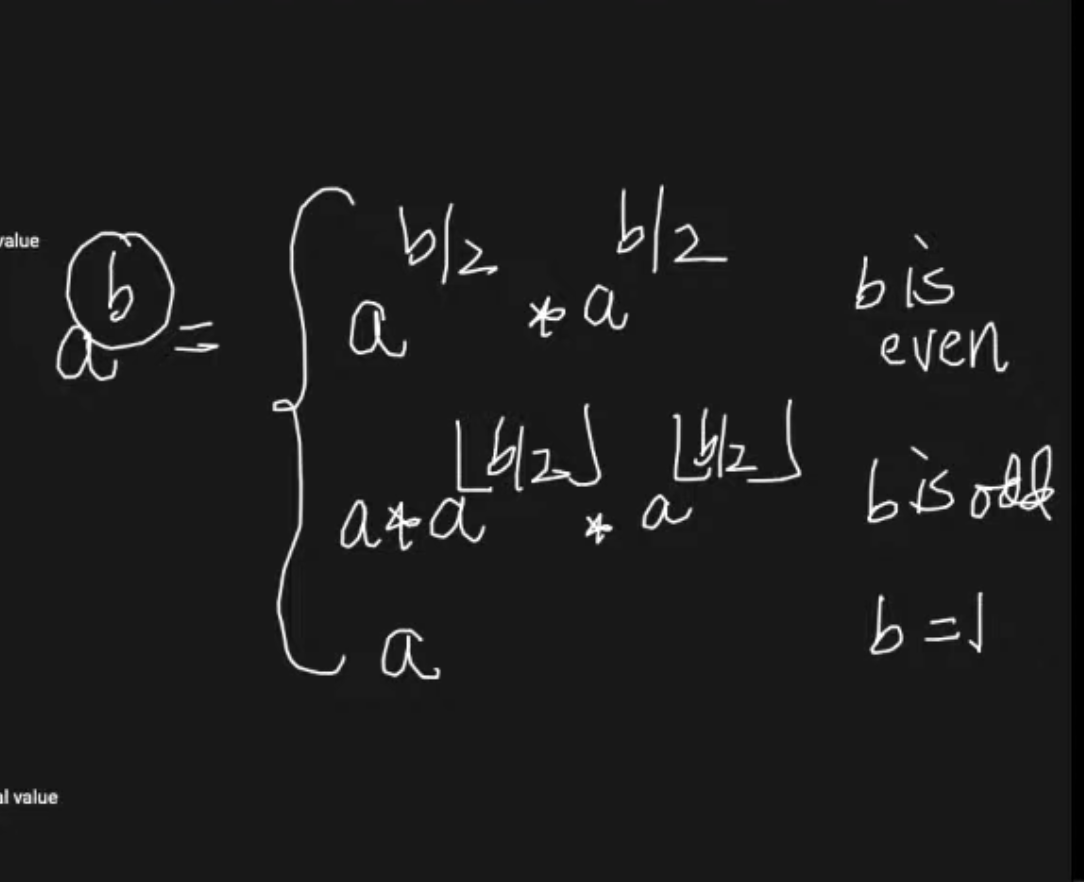 value
a^b = { a^{b/2} * a^{b/2} b is even
a * a^{⌊b/2⌋} * a^{⌊b/2⌋} b is odd
a b = 1
al value